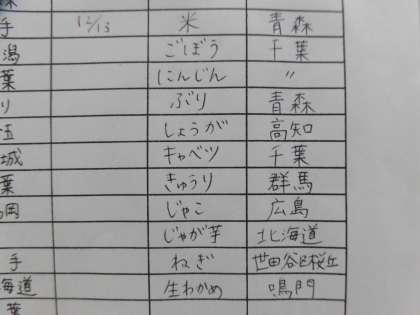 手 12/13 米 青森
潟 ごぼう 千葉
葉 にんじん 〃
り ぶり 青森
玉 しょうが 高知
城 キャベツ 千葉
葉 きゅうり 群馬
岡 じゃこ 広島
じゃが芋 北海道
手 ねぎ 世田谷区桜丘
海道 生わかめ 鳴門
葉